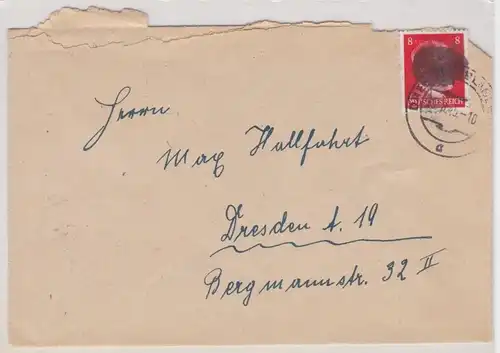 8 8
DEUTSCHES REICH
Herrn
Max Hallfahrt
Dresden A. 19
Bergmannstr. 32 II
a